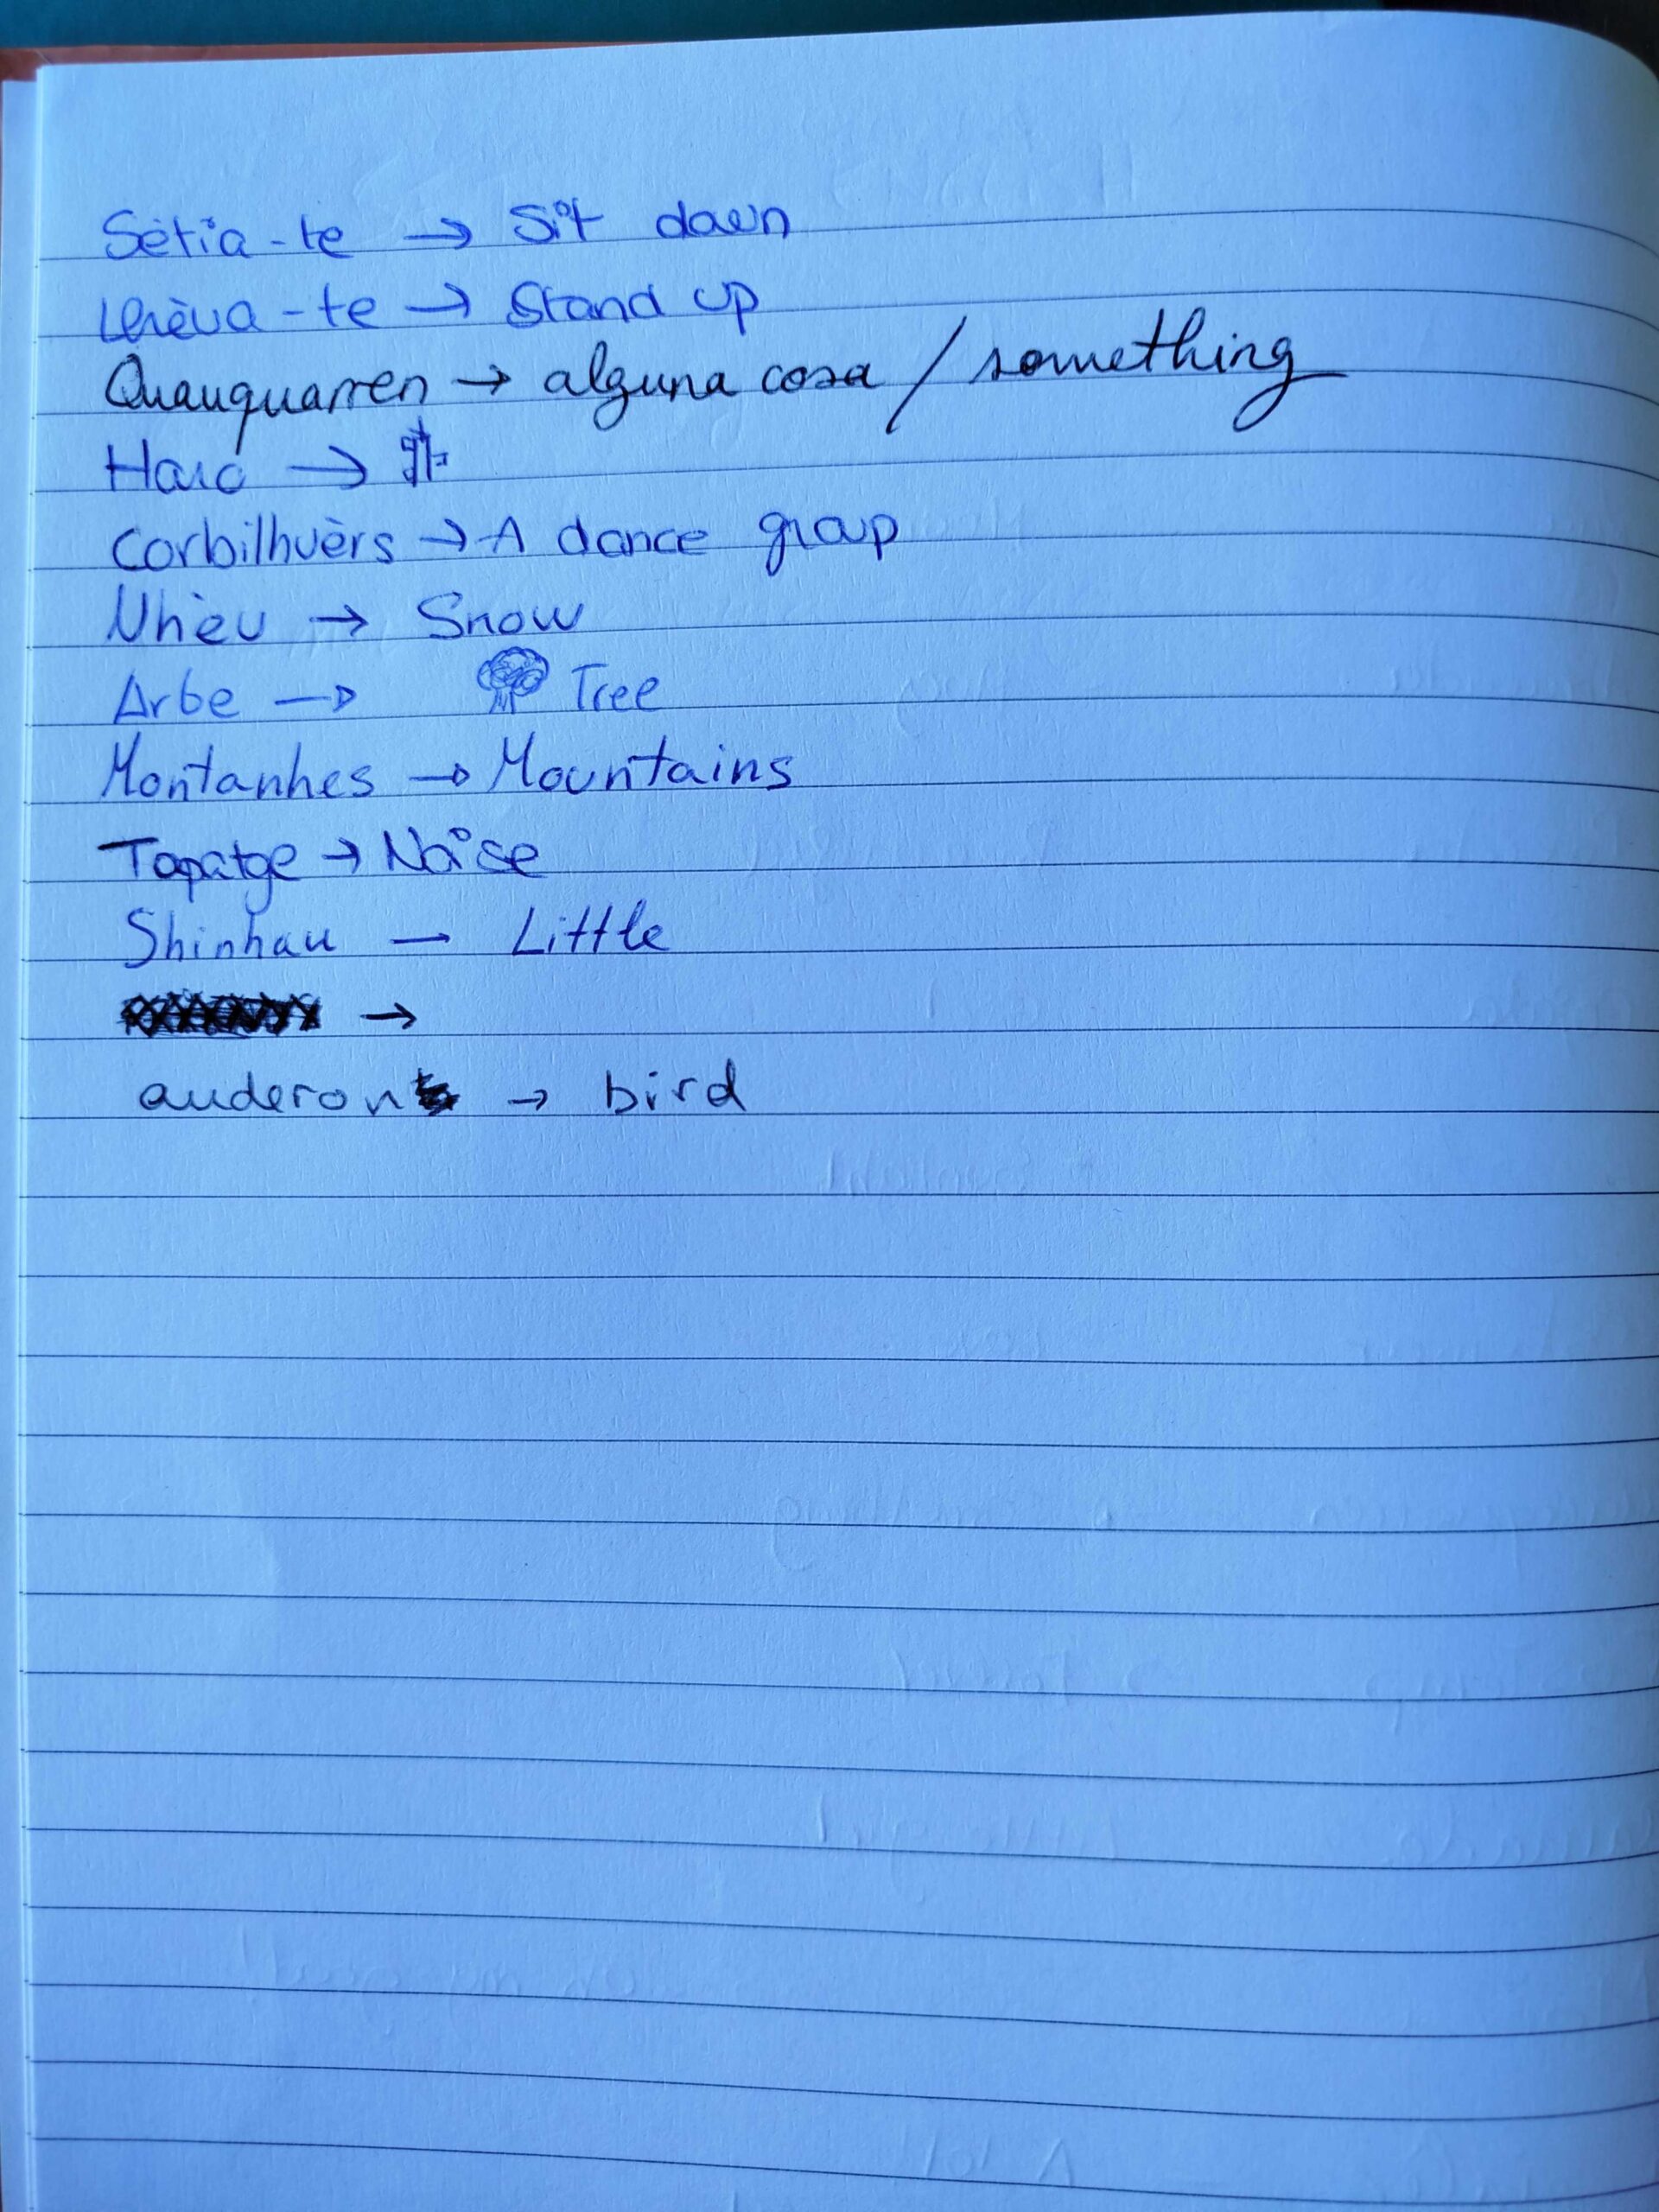 Sètia-te → Sit down
Lhèva-te → Stand up
Quauquarren → alguna cosa / something
Haro →
Corbilhuèrs → A dance group
Nhèu → Snow
Arbe → Tree
Montanhes → Mountains
Tapatge → Noise
Shinhau — Little
→
auderon → bird